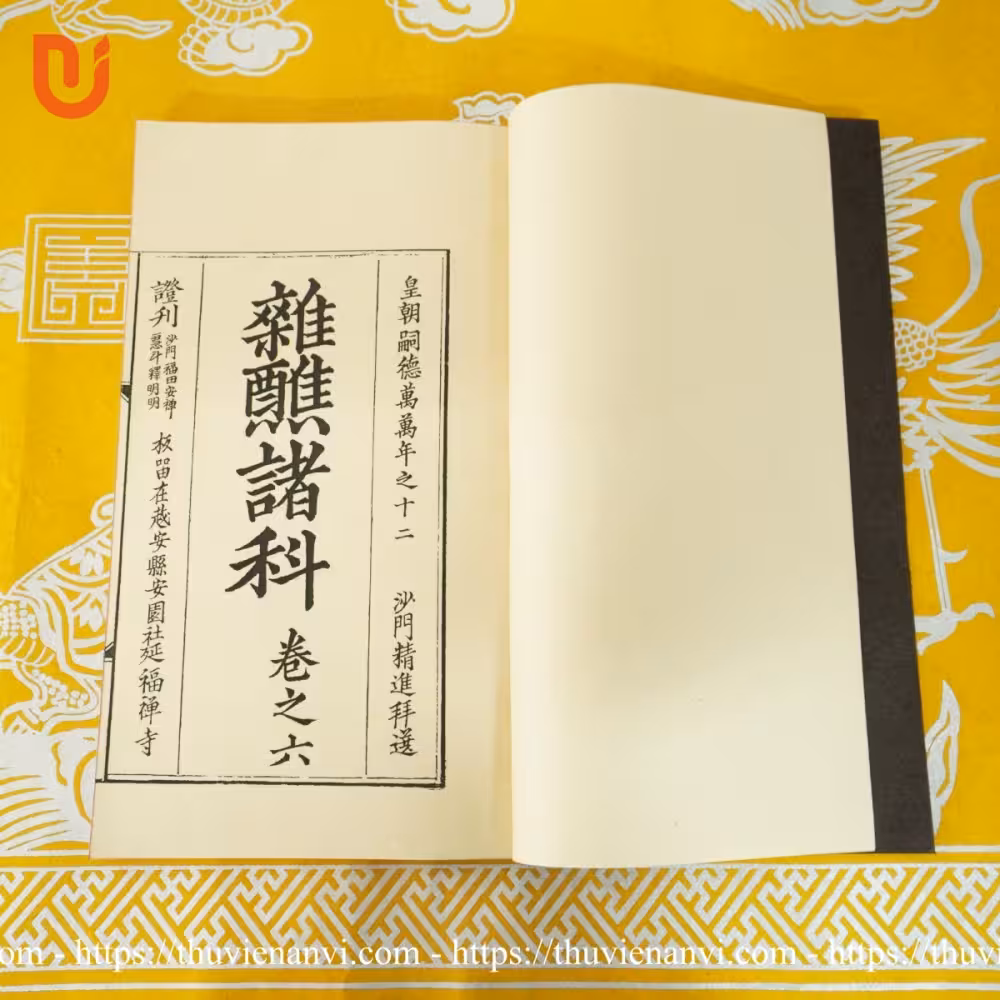 皇朝嗣德萬萬年之十二 沙門精進拜選
雜醮諸科 卷之六
證刋
沙門福田安禅
釋明明
板留在 安縣安園社延福禅寺
om - https://thuvienanvi.com - https://thuvienanvi.com - https://thuv